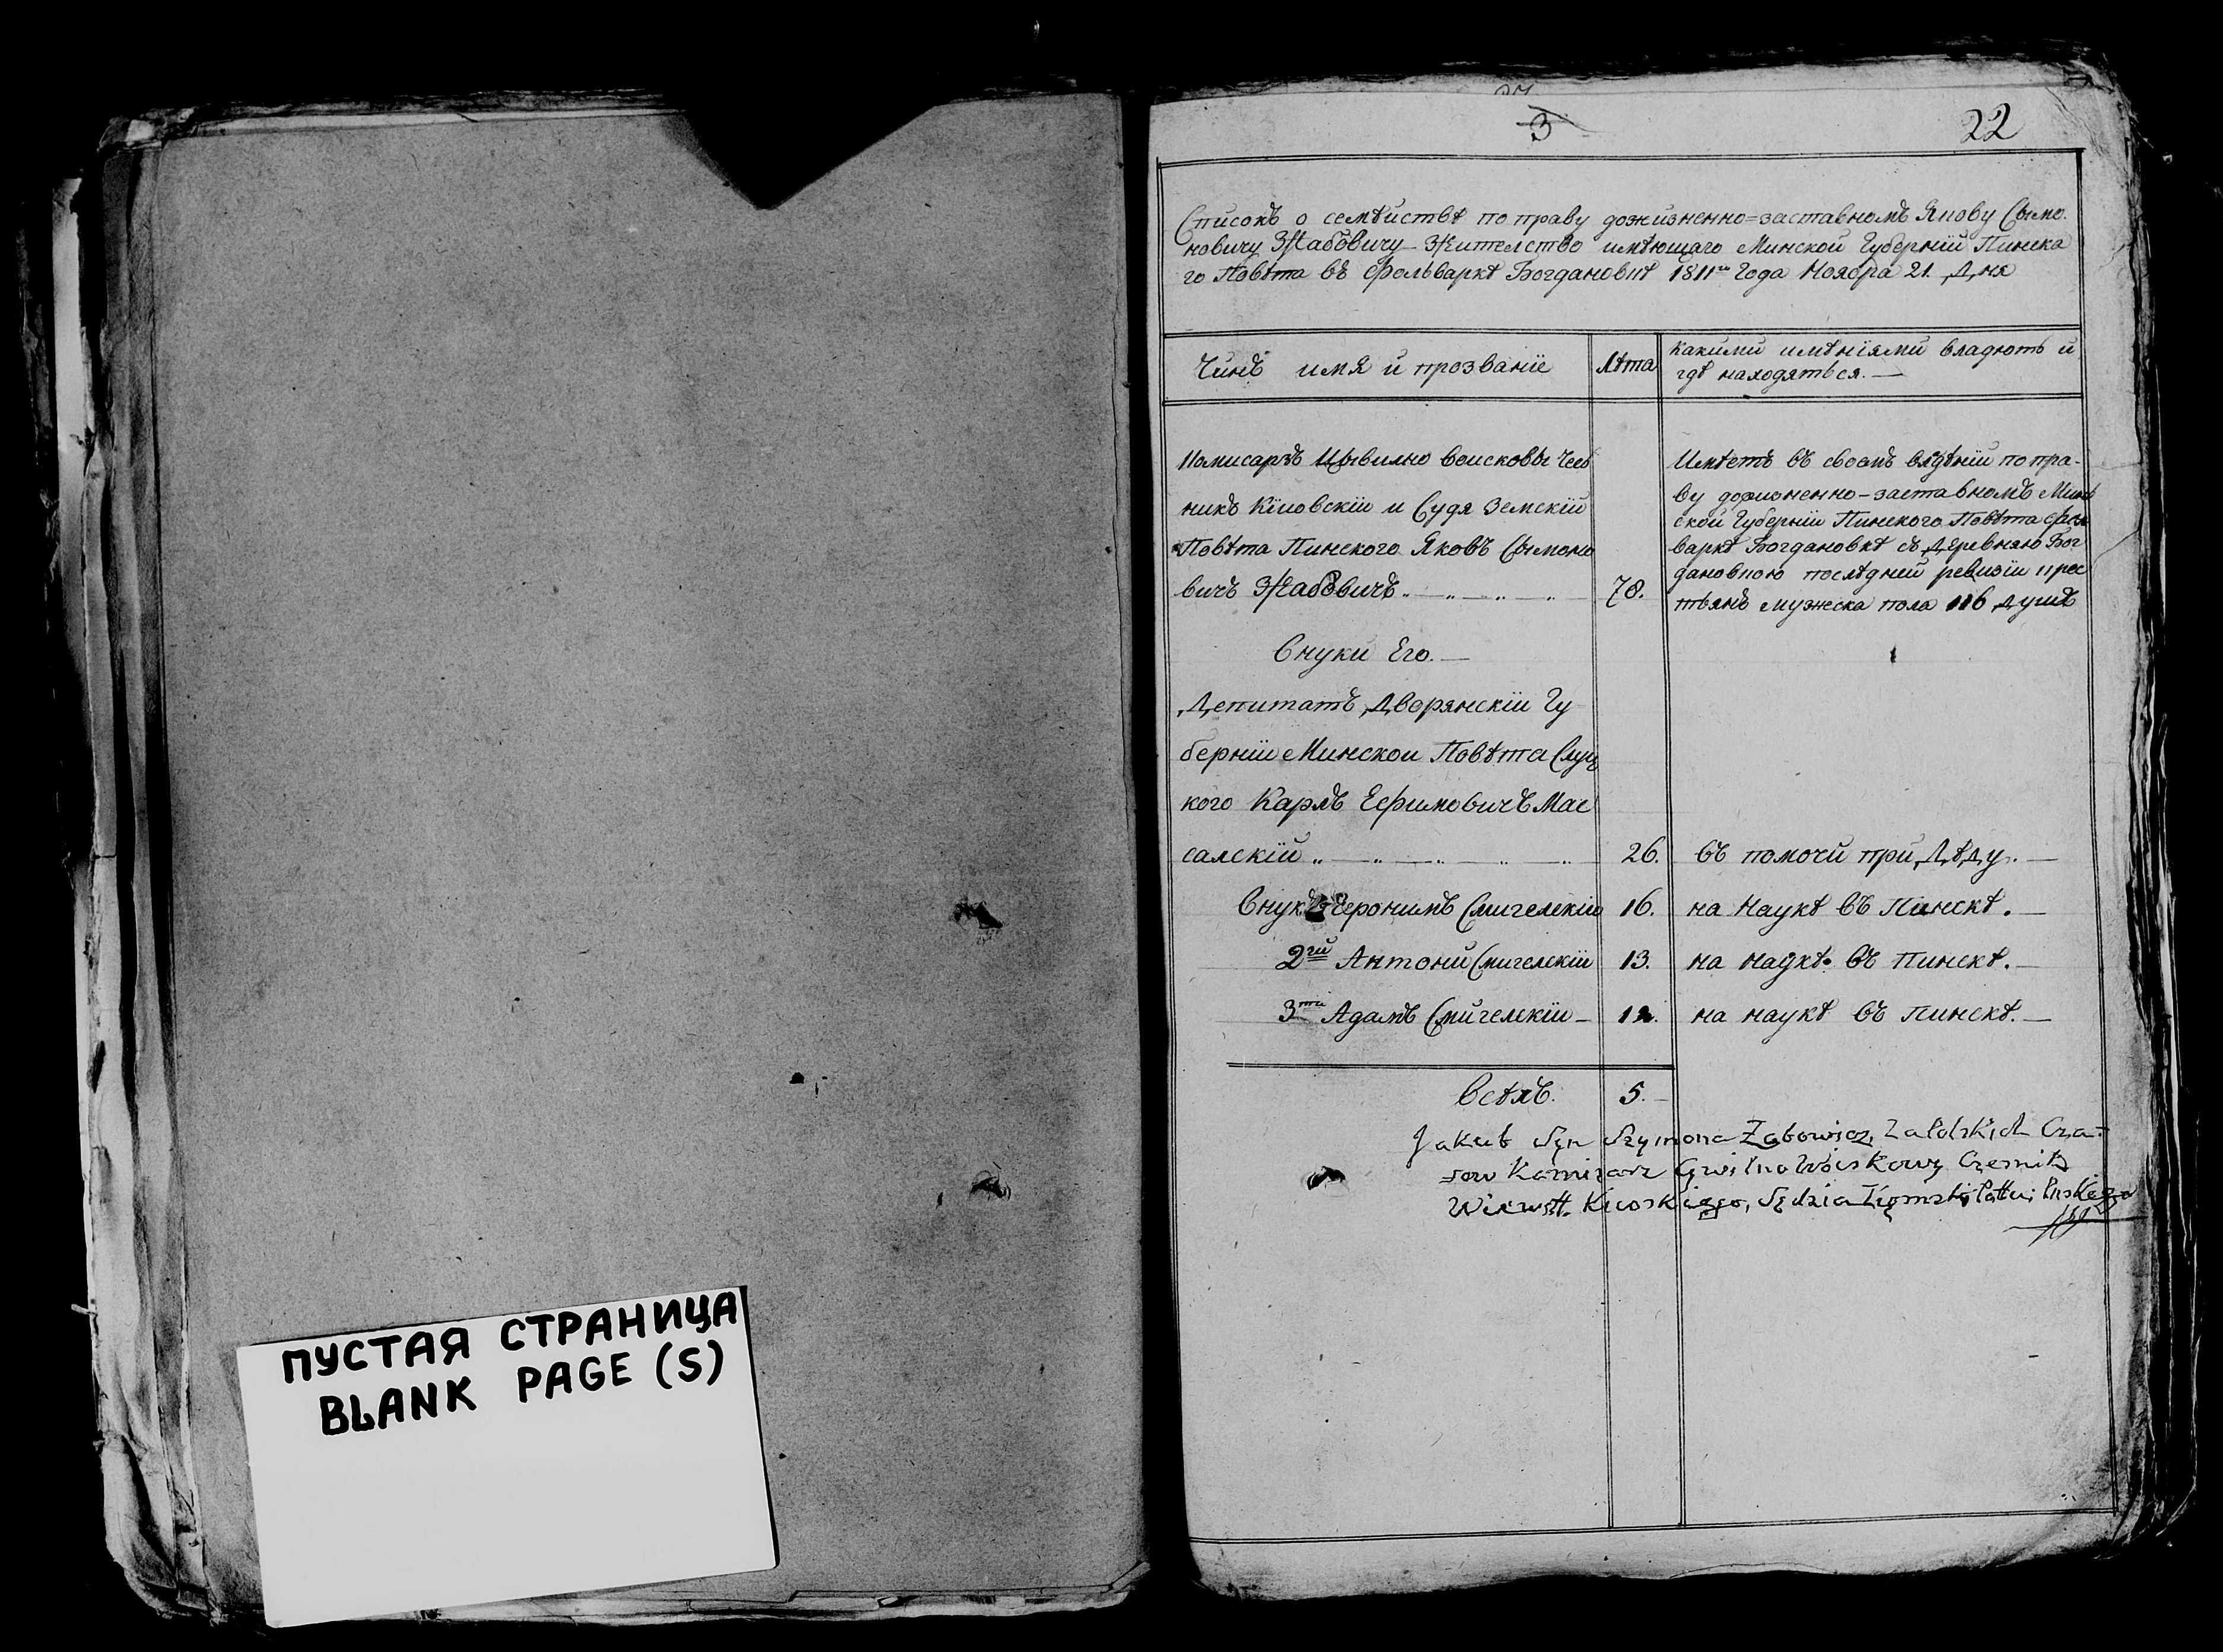 ПУСТАЯ СТРАНИЦА
BLANK PAGE (S)
3
22
Списокъ о семѣйствѣ по праву дожизненно=заставномъ Якову Сымо-
новичу Жабовичу Жителство имѣющаго Минской Губернїи Пинска
го Повѣта въ Фольваркѣ Богдановкѣ 1811го Года Ноября 21. Дня
Чинъ имя и прозванїе
Лѣта
Какими имѣнїями владѣютъ и
гдѣ находяться.—
Комисаръ Цывилно Воисковы Чес
никъ Кїиовскїи и Судя Земскїи
Повѣта Пинского Яковъ Сымоно
вичъ Жабовичъ
78.
Имѣетъ въ своемъ влдѣнїи по пра-
ву дожизненно-заставномъ Мин
ской Губернїи Пинского Повѣта Фол
варкѣ Богдановкѣ съ Деревнею Бог
дановкою последней ревизїи крес
тьянъ мужеска пола 116 душъ
Внуки Его.—
Депитатъ Дворянскїи Гу
бернїи Минскои Повѣта Слуц
кого Карлъ Ефимовичъ Мас
салскїи
26.
въ помочи при Дѣду.—
Внукъ Еронимъ Смигелскїи
16.
на Наукѣ въ Пинскѣ.—
2гй Антони Смигелскїи
13.
на наукѣ въ Пинскѣ.—
3ти Адамъ Смигелскїи—
12.
на наукѣ въ Пинскѣ.—
Всѣхъ.
5.—
Jakub Syn Szymona Żabowicz, Cza-
sow Komisarz Cywilno Woiskowy Czesnik
Wiewstt. Kiioskiego, Sędzia Ziemski Pttu Pinskiego